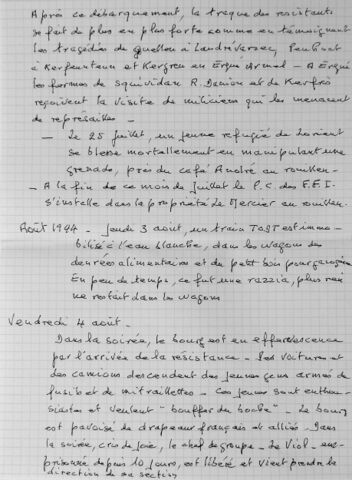 Après ce débarquement, la traque des résistants
se fait de plus en plus forte comme en témoignent
les tragédies de Quellen à Landrévarzec, Penhoat
à Kerfeunteun et Kergren en Ergué Armel - A Ergué
les fermes de Squividan R. Danion et de Kerfrès
reçoivent la visite de miliciens qui les menacent
de représailles -
- Le 25 juillet, un jeune réfugié de Lorient
se blesse mortellement en manipulant une
grenade, près du café André au rouillen -
- A la fin de ce mois de juillet le P.C. des F.F.I.
s'installe dans la propriété Le Mercier au rouillen.
Août 1944 - Jeudi 3 août, un train est immo-
bilisé à l'eau blanche, dans les wagons des
denrées alimentaires et du petit bois pour gazogène
En peu de temps, ce fut une razzia, plus rien
ne restait dans les wagons
Vendredi 4 août -
Dans la soirée, le bourg est en effervescence
par l'arrivée de la résistance - Des voitures et
des camions descendent des jeunes gens armés de
fusils et de mitraillettes - Ces jeunes sont enthou-
siastes et veulent "bouffer du boche" - Le bourg
est pavoisé de drapeaux français et alliés - Dans
la soirée, cris de joie, le chef de groupe - Le Viol - em-
prisonné depuis 10 jours, est libéré et vient prendre la
direction de sa section